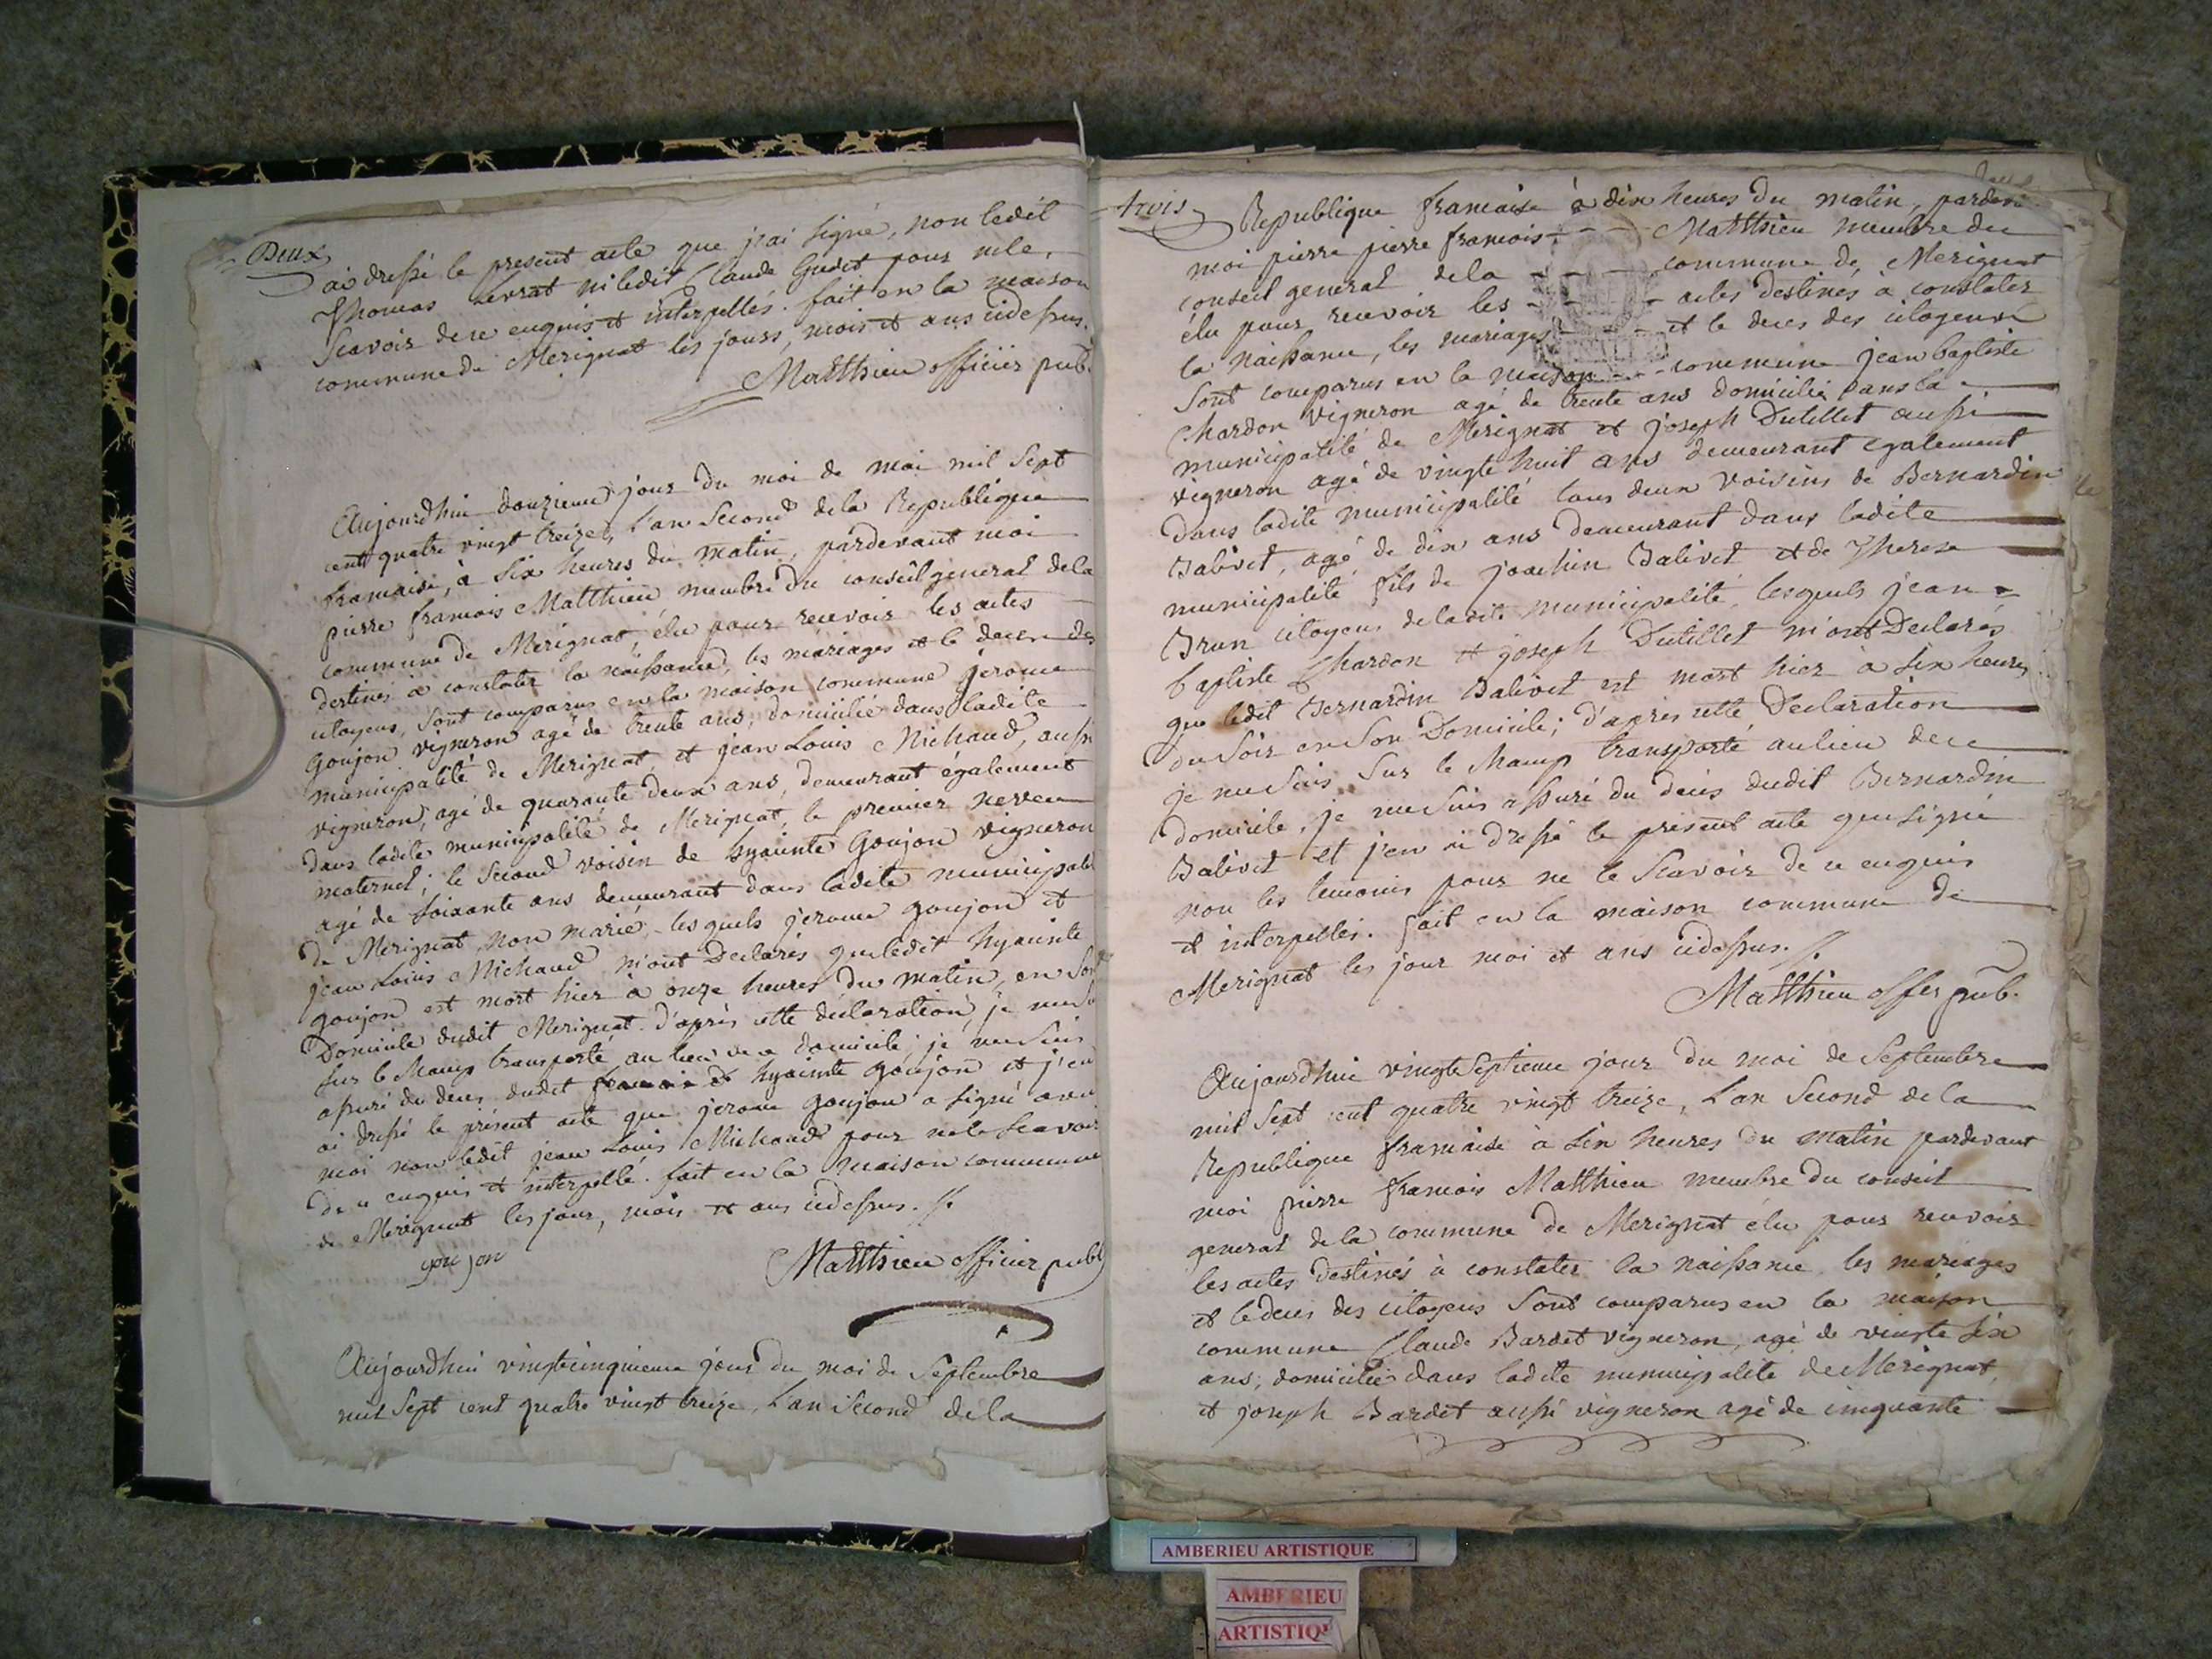 Deux
ai dressé le present acte que j'ai signé, non ledit
Thomas nevrat ni ledit Claude Gudet pour ne le
Scavoir de ce enquis et interpellés. fait en la maison
commune de Merignat les jours, mois et ans cidessus.
Matthieu officier pub.
Aujourdhui douzieme jour du moi de mai mil Sept
cent quatre vingt treize, L'an Second de la Republique
francaise, à Six heures du matin, pardevant moi
pierre francois Matthieu membre du conseil general dela
commune de Merignat, élu pour recevoir les actes
destinés à constater la naissance, les mariages et le deces des
citoyens, Sont comparus en la maison commune jerome
Goujon vigneron agé de trente ans, domicilié dans ladite
municipalité de Merignat, et jean Louis Michaud, aussi
vigneron, agé de quarante deux ans, demeurant également
dans ladite municipalité de Merignat, le premier neveu
maternel; le Second voisin de hyacinte Goujon vigneron
agé de Soixante ans demeurant dans ladite municipalité
de Merignat, non marié, lesquels jerome goujon et
jean Louis Michaud m'ont Declarés que ledit hyacinte
goujon est mort hier à onze heures du matin, en Son
Domicile dudit Merignat. D'après cette déclaration, je me Suis
Sur le Champ transporté au lieu de ce domicile, je me Suis
assuré du deces dudit hyacinte goujon et j'en
ai dressé le présent acte que jerome goujon a signé avec
moi non ledit jean Louis Michaud pour ne le Scavoir
de ce enquis et interpellé. fait en la maison commune
de Merignat les jour, mois et ans cidessus.
goujon
Matthieu officier publ
Aujourdhui vingtecinquieme jour du moi de Septembre
mil Sept cent quatre vingt treize, L'an Second dela
trois
Republique francaise à dix heures du matin, pardevant
moi pierre pierre francois - - - Matthieu membre du
conseil general dela - - - commune de Merignat
élu pour recevoir les - - - actes destinés à constater
la naissance, les mariages - - - et le deces des citoyens
Sont comparus en la maison - - - commune jean baptiste
Chardon vigneron agé de trente ans domicilié dans la
municipalité de Merignat et joseph Dutillet aussi
vigneron agé de vingte huit ans demeurant également
Dans ladite municipalité tous deux voisins de Bernardin
Balivet, agé de dix ans demeurant dans ladite
municipalité fils de joachin Balivet et de Therese
Brun citoyens deladite municipalité, lesquels jean =
baptiste Chardon et joseph Dutillet m'ont Declarés
que ledit Bernardin Balivet est mort hier à Six heures
du Soir en Son Domicile; d'après cette Declaration
je me Suis Sur le Champ transporté au lieu de ce
domicile, je me Suis assuré du deces dudit Bernardin
Balivet et j'en ai dressé le présent acte que signé
non les temoins pour ne le Scavoir de ce enquis
et interpellés. fait en la maison commune de
Merignat les jour moi et ans cidessus.
Matthieu offer pub.
Aujourdhui vingte Septieme jour du moi de Septembre
mil Sept cent quatre vingt treize, L'an Second de la
Republique francaise à Six heures du matin pardevant
moi pierre francois Matthieu membre du conseil
general dela commune de Merignat élu pour recevoir
les actes destinés à constater la naissance, les mariages
et le deces des citoyens Sont comparus en la maison
commune Claude Bardet vigneron, agé de vingte Six
ans, domicilié dans ladite municipalité de Merignat,
et joseph Bardet aussi vigneron agé de cinquante
AMBERIEU ARTISTIQUE
AMBERIEU
ARTISTIQ